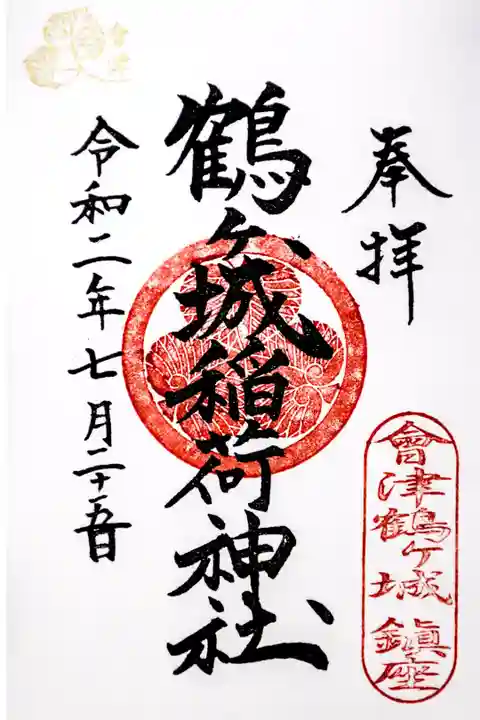 奉拝
鶴ヶ城稲荷神社
令和二年七月二十五日
會津鶴ヶ城鎮座